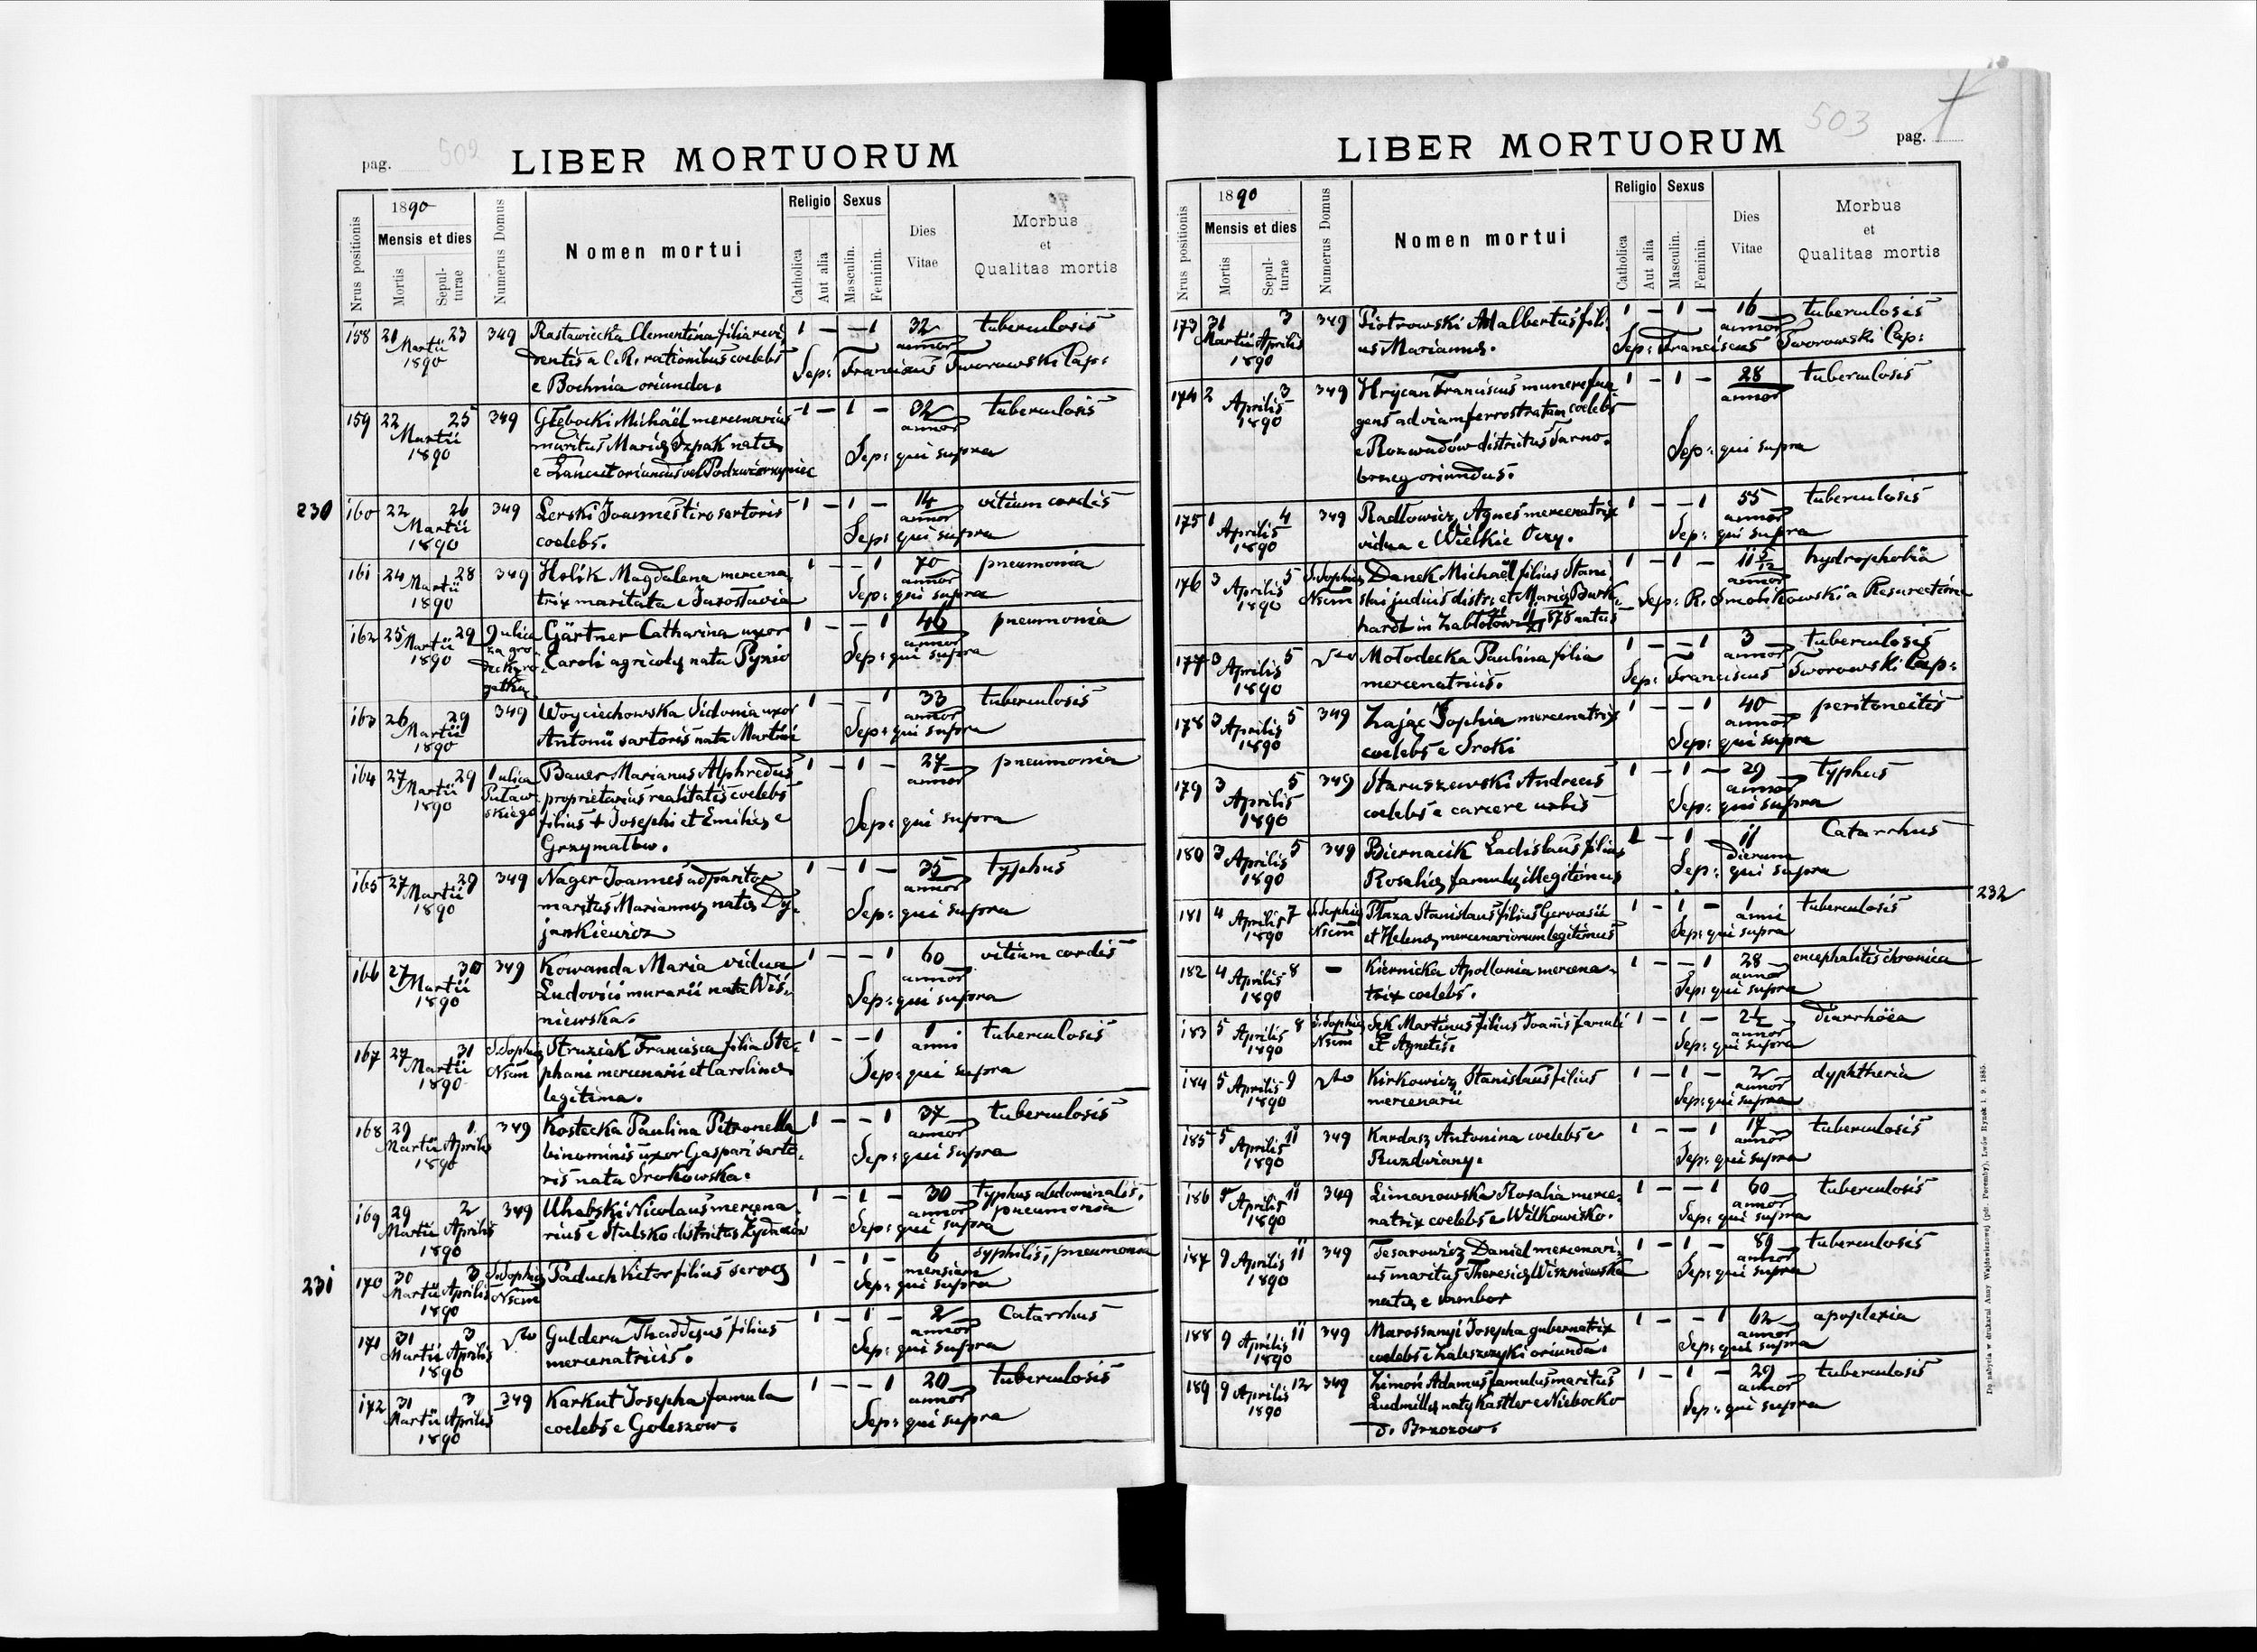 502
pag.
LIBER MORTUORUM
Nrus positionis
1890
Mensis et dies
Mortis
Sepulturae
Numerus Domus
Nomen mortui
Religio
Catholica
Aut alia
Sexus
Masculin.
Feminin.
Dies
Vitae
Morbus
et
Qualitas mortis
158 21 23 349 Rastawiecka Clementina filia revi 1 — — 1 32 tuberculosis
Martii dentis a C. R. rationibus coelebs annor
1890 e Bochnia oriunda. Sep: Franciscus Tworowski Cap:
159 22 25 349 Głębocki Michaël mercenarius 1 — 1 — 32 tuberculosis
Martii maritus Mariæ Szpak natæ annor
1890 e Łańcut oriundus vel Podzwierzyniec Sep: qui supra
230 160 22 26 349 Lerski Joannes tiro sartoris 1 — 1 — 14 vitium cordis
Martii coelebs. annor
1890 Sep: qui supra
161 24 28 349 Holik Magdalena mercena 1 — — 1 70 pneumonia
Martii trix maritata e Jarosłavia annor
1890 Sep: qui supra
162 25 29 9 ulica Gärtner Catharina uxor 1 — — 1 46 pneumonia
Martii na gro Caroli agricolæ nata Pyzio annor
1890 Sep: qui supra
163 26 29 349 Woyciechowska Sidonia uxor 1 — — 1 33 tuberculosis
Martii Antonii sartoris nata Martini annor
1890 Sep: qui supra
164 27 29 1 ulica Bauer Marianus Alphredus 1 — 1 — 27 pneumonia
Martii Puław proprietarius realitatis coelebs annor
1890 skiego filius + Josephi et Emiliæ e Sep: qui supra
Grzymałów.
165 27 29 349 Nager Joannes adparitor 1 — 1 — 35 typhus
Martii maritus Mariannæ natæ Dy annor
1890 jankiewicz Sep: qui supra
166 27 30 349 Kowanda Maria vidua 1 — — 1 60 vitium cordis
Martii Ludovici murarii nata Wiś annor
1890 niewska. Sep: qui supra
167 27 31 S. Sophiæ Struziak Francisca filia Ste 1 — — 1 1 tuberculosis
Martii Nsem phani mercenarii et Carolinæ anni
1890 legitima. Sep: qui supra
168 29 1 349 Kostecka Paulina Petronella 1 — — 1 37 tuberculosis
Martii Aprilis binominis uxor Gaspari sarto annor
1890 ris nata Srokowska. Sep: qui supra
169 29 2 349 Uhabski Nicolaus mercena 1 — 1 — 30 typhus abdominalis,
Martii Aprilis rius e Stulsko districtus Żydaczów annor pneumonia
1890 Sep: qui supra
231 170 30 3 S. Sophiæ Paduch Victor filius servæ 1 — 1 — 6 syphilis, pneumonia
Martii Aprilis Nsem mensium
1890 Sep: qui supra
171 31 3 Guldera Thaddæus filius 1 — 1 — 2 Catarrhus
Martii Aprilis mercenatricis. annor
1890 Sep: qui supra
172 31 3 349 Karkut Josepha famula 1 — — 1 20 tuberculosis
Martii Aprilis coelebs e Goleszów. annor
1890 Sep: qui supra
503
pag.
LIBER MORTUORUM
Nrus positionis
1890
Mensis et dies
Mortis
Sepulturae
Numerus Domus
Nomen mortui
Religio
Catholica
Aut alia
Sexus
Masculin.
Feminin.
Dies
Vitae
Morbus
et
Qualitas mortis
173 31 3 349 Piotrowski Adalbertus fili 1 — 1 — 16 tuberculosis
Martii Aprilis us Mariannæ. annor
1890 Sep: Franciscus Tworowski Cap:
174 2 3 349 Hrycan Franciscus munere fun 1 — 1 — 28 tuberculosis
Aprilis gens ad viam ferrostratam coelebs annor
1890 e Rozwadów districtus Tarno Sep: qui supra
brzeg oriundus.
175 1 4 349 Radłowicz Agnes mercenatrix 1 — — 1 55 tuberculosis
Aprilis vidua e Wielkie Oczy. annor
1890 Sep: qui supra
176 3 5 S. Sophiæ Danek Michaël filius Stani 1 — 1 — 11 5/12 hydrophobia
Aprilis Nsem slai judicis distr: et Mariæ Burk annor
1890 hardt in Zabłotów 1878 natus Sep: R. Smolikowski a Resurectione
177 3 5 Mołodecka Paulina filia 1 — — 1 3 tuberculosis
Aprilis mercenatricis. annor
1890 Sep: Franciscus Tworowski Cap:
178 3 5 349 Zając Sophia mercenatrix 1 — — 1 40 peritoneitis
Aprilis coelebs e Sroki annor
1890 Sep: qui supra
179 3 5 349 Staruszewski Andreas 1 — 1 — 29 typhus
Aprilis coelebs e carcere urbis annor
1890 Sep: qui supra
180 3 5 349 Biernacik Ladislaus filius 1 — 1 11 Catarrhus
Aprilis Rosaliæ famulæ illegitimus dierum
1890 Sep: qui supra
232
181 4 7 S. Sophiæ Płaza Stanislaus filius Gervasii 1 — 1 — 1 tuberculosis
Aprilis Nsem et Helenæ mercenariorum legitimus anni
1890 Sep: qui supra
182 4 8 — Kiernicka Apollonia mercena 1 — — 1 28 encephalitis chronica
Aprilis trix coelebs. annor
1890 Sep: qui supra
183 5 8 S. Sophiæ Sęk Martinus filius Joannis famuli 1 — 1 — 2½ diarrhöea
Aprilis Nsem et Agnetis. annor
1890 Sep: qui supra
184 5 9 Kirkowicz Stanislaus filius 1 — 1 — 2 dyphtheria
Aprilis mercenarii annor
1890 Sep: qui supra
185 5 11 349 Kardasz Antonina coelebs e 1 — — 1 17 tuberculosis
Aprilis Ruzdwiany. annor
1890 Sep: qui supra
186 11 349 Limanowska Rosalia merce 1 — — 1 60 tuberculosis
Aprilis natrix coelebs e Wilkowisko. annor
1890 Sep: qui supra
187 9 11 349 Tesarowicz Daniel mercenari 1 — 1 — 89 tuberculosis
Aprilis us maritus Theresiæ Wiszniewska annor
1890 natæ e Sambor Sep: qui supra
188 9 11 349 Marossanyi Josepha gubernatrix 1 — — 1 62 apoplexia
Aprilis coelebs e Zaleszczyki oriunda. annor
1890 Sep: qui supra
189 9 12 349 Zimoń Adamus famulus maritus 1 — 1 — 29 tuberculosis
Aprilis Ludmillæ natæ Kastler e Niebocko annor
1890 d. Brzozów. Sep: qui supra
Do nabycia w drukarni Anny Wajdowiczowej (pdr. Poremby), Lwów Rynek l. 9. 1885.